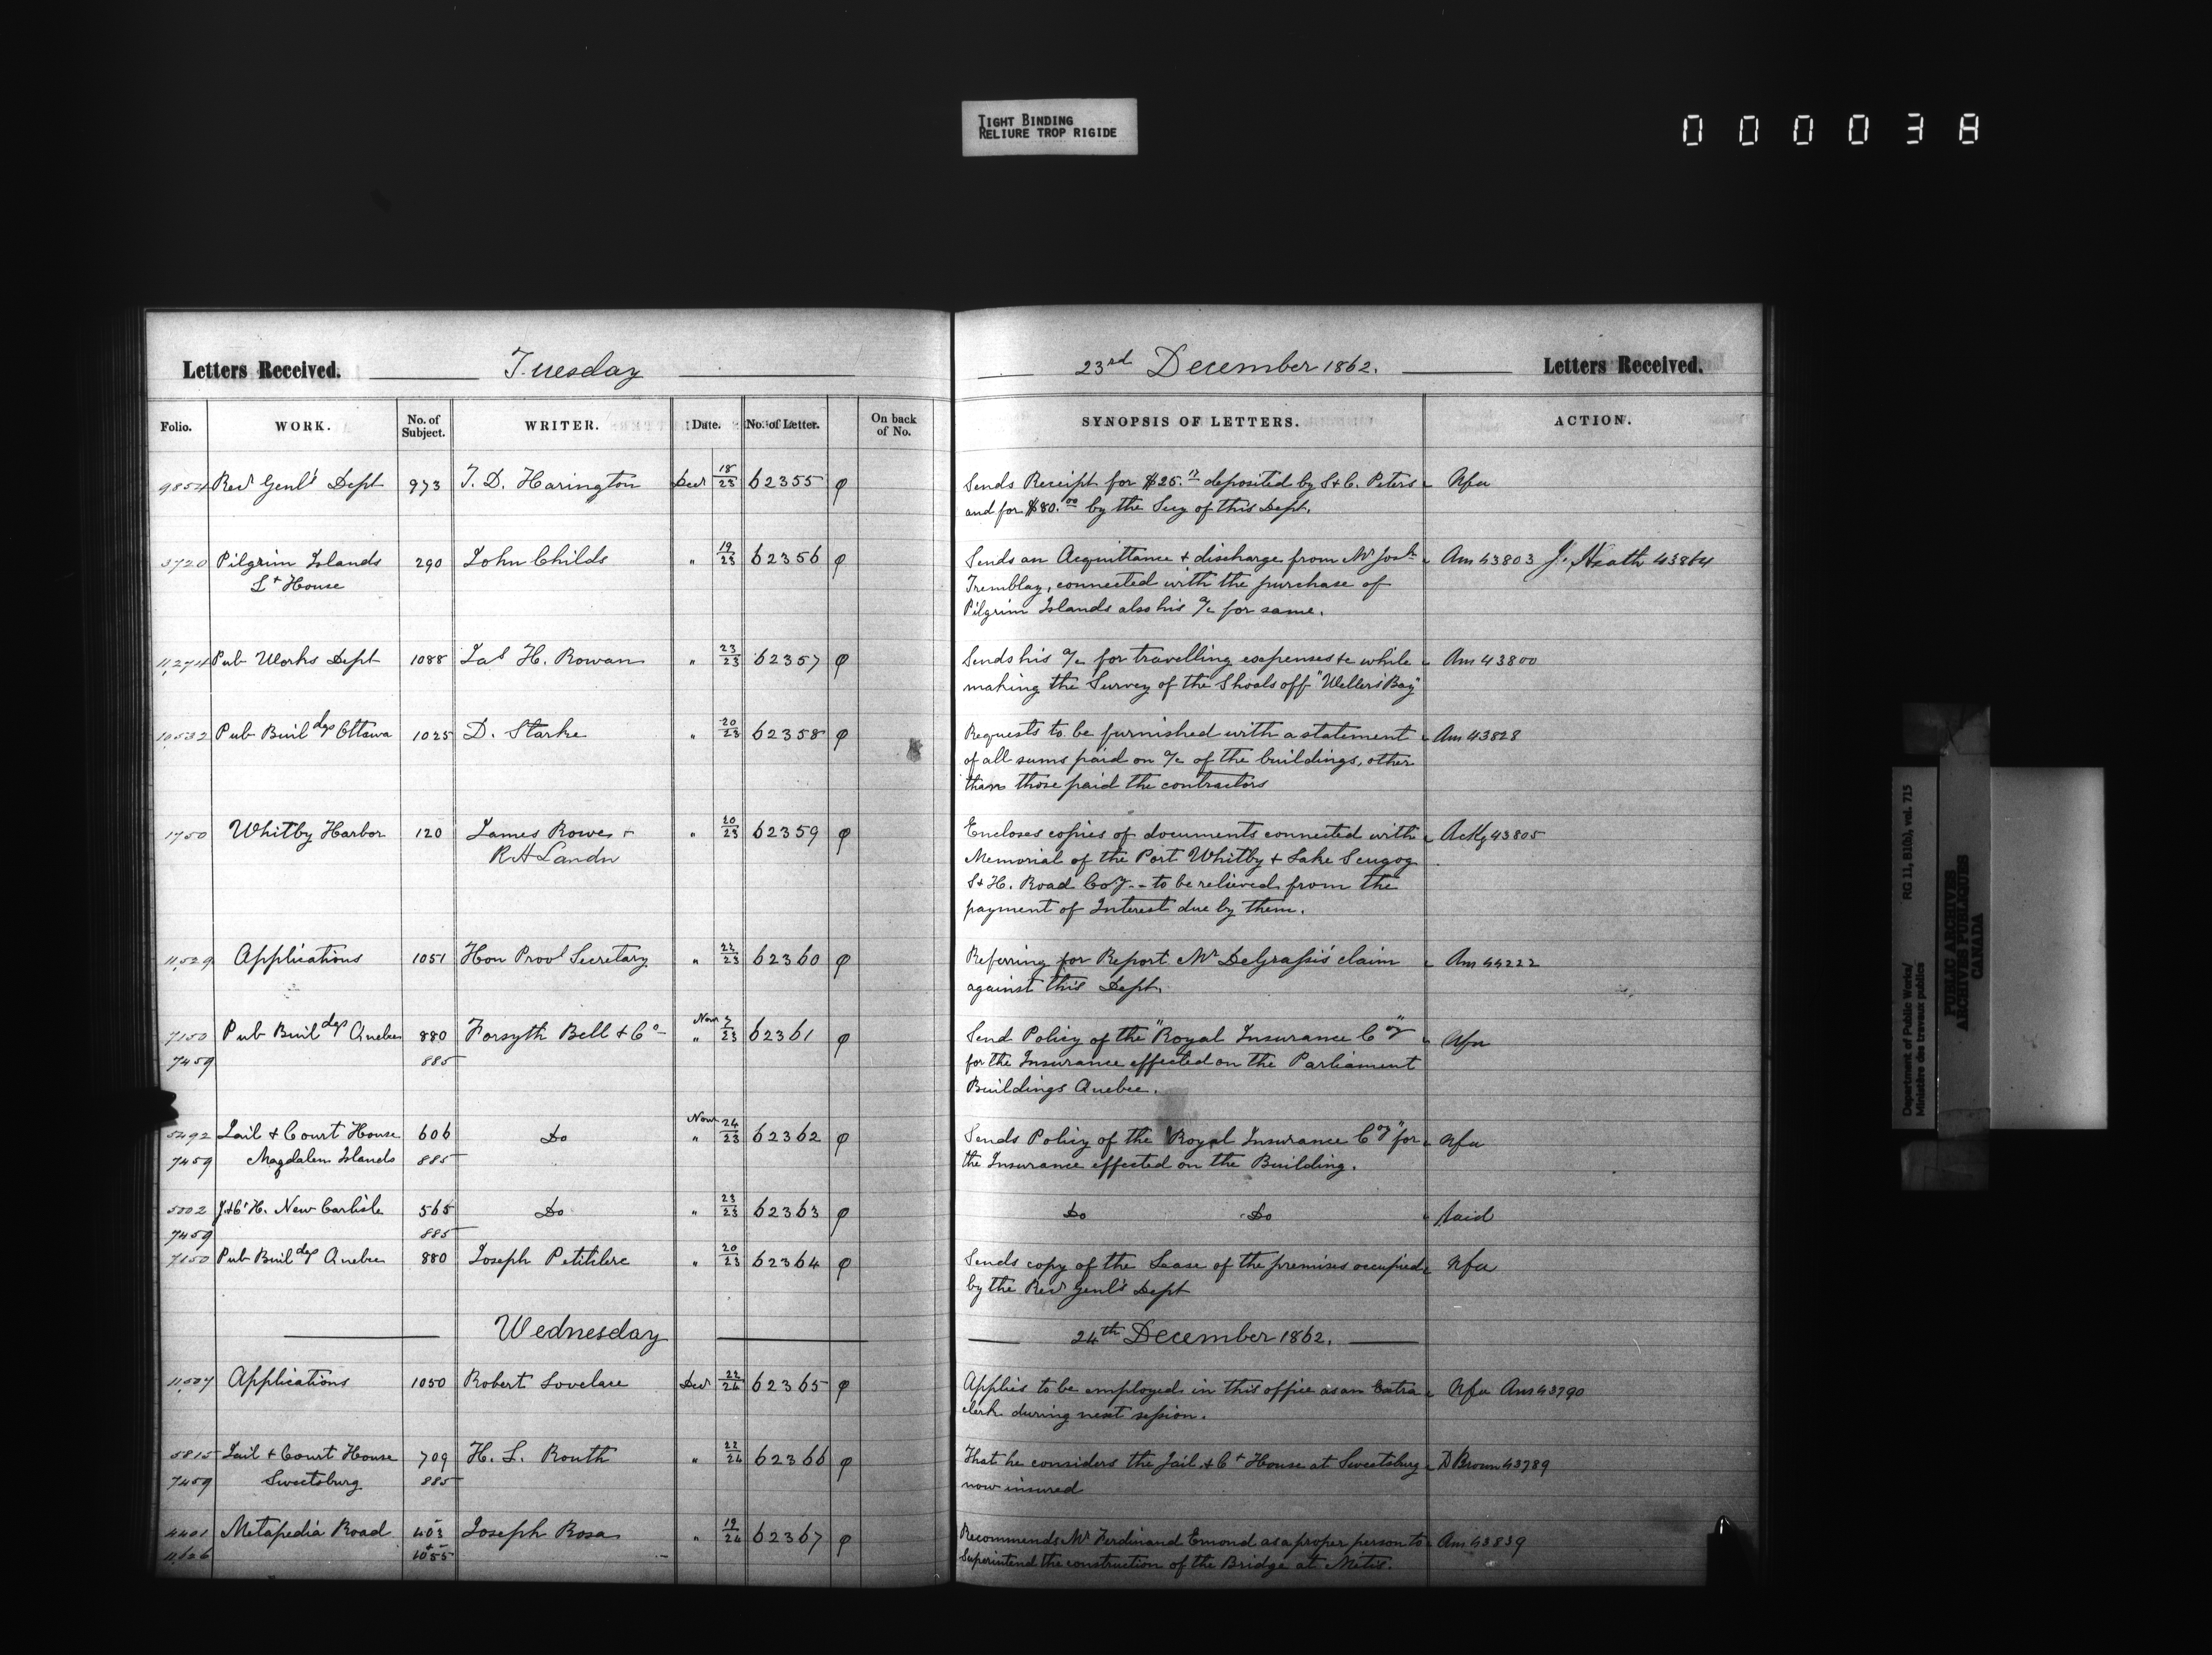 TIGHT BINDING
RELIURE TROP RIGIDE
000038
Letters Received. Tuesday 23rd December 1862. Letters Received.
Folio. WORK. No. of Subject. WRITER. Date. No. of Letter. On back of No. SYNOPSIS OF LETTERS. ACTION.
9854 Recr Genl's Dept 973 T. D. Harington Decr 18/23 62355 φ Sends Receipt for $25. deposited by S & C. Peters Nfa
and for $80.00 by the Secy of this Dept.
3720 Pilgrim Islands 290 John Childs " 19/23 62356 φ Sends an Acquittance & discharge from Mr Josh Ans 43803 J. Heath 43864
Lt House Tremblay, connected with the purchase of
Pilgrim Islands also his a/c for same.
11,274 Pub Works Dept 1088 Jas H. Rowan " 23/23 62357 φ Sends his a/c for travelling expenses &c while Ans 43800
making the Survey of the Shoals off "Wellers Bay"
10532 Pub Buildgs Ottawa 1025 D. Starke " 20/23 62358 φ Requests to be furnished with a statement Ans 43828
of all sums paid on a/c of the buildings, other
than those paid the contractors
1750 Whitby Harbor 120 James Rowe & " 20/23 62359 φ Encloses copies of documents connected with Ackg 43805
R H Landn Memorial of the Port Whitby & Lake Scugog
S & H. Road Coy - to be relieved from the
payment of Interest due by them.
11,529 Applications 1051 Hon Provl Secretary " 22/23 62360 φ Referring for Report Mr DeGrassi's claim Ans 44222
against this Dept.
7150 Pub Buildgs Quebec 880 Forsyth Bell & Co Novr " 7/23 62361 φ Send Policy of the "Royal Insurance Coy" Nfa
7459 885 for the Insurance effected on the Parliament
Buildings Quebec.
5492 Jail & Court House 606 Do Novr " 24/23 62362 φ Sends Policy of the "Royal Insurance Coy" for Nfa
7459 Magdalen Islands 885 the Insurance effected on the Building.
5002 J & Ct H. New Carlisle 565 Do " 23/23 62363 φ Do Do
7459 885
7150 Pub Buildgs Quebec 880 Joseph Petitclerc " 20/23 62364 φ Sends copy of the Lease of the premises occupied Nfa
by the Recr Genl's Dept
Wednesday 24th December 1862.
11,507 Applications 1050 Robert Lovelace Decr 22/24 62365 φ Applies to be employed in this office as an Extra Nfa Ans 43790
clerk during next session.
5815 Jail & Court House 709 H. L. Routh " 22/24 62366 φ That he considers the Jail & Ct House at Sweetsburg D Brown 43789
7459 Sweetsburg 885 now insured
4401 Metapedia Road 403 Joseph Rosa " 19/24 62367 φ Recommends Mr Ferdinand Emond as a proper person to Ans 43839
11,626 1055 Superintend the construction of the Bridge at Metis.
Department of Public Works/ RG 11, B1(b), vol. 715
Ministère des travaux publics
PUBLIC ARCHIVES
ARCHIVES PUBLIQUES
CANADA